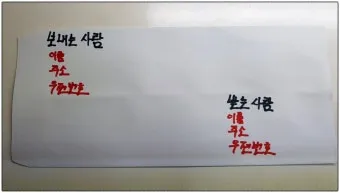 보내는 사람
이름
주소
우편번호
받는 사람
이름
주소
우편번호